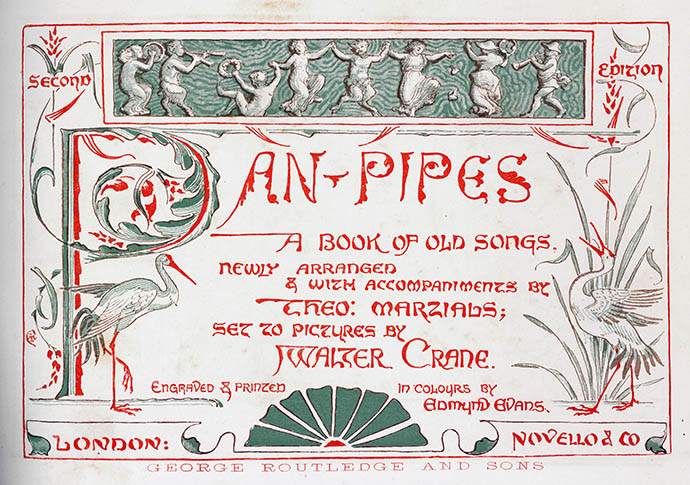 SECOND EDITION
PAN-PIPES
A BOOK OF OLD SONGS.
NEWLY ARRANGED
& WITH ACCOMPANIMENTS BY
THEO: MARZIALS;
SET TO PICTURES BY
WALTER CRANE.
ENGRAVED & PRINTED IN COLOURS BY
EDMUND EVANS.
LONDON: NOVELLO & CO
GEORGE ROUTLEDGE AND SONS